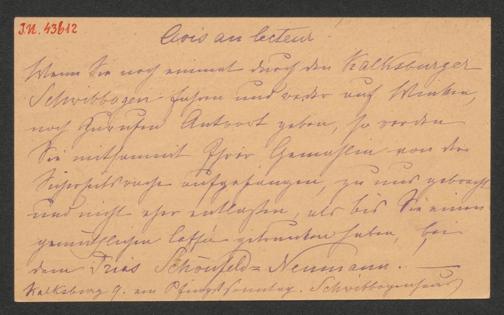 I.N. 43612
Avis au lecteur.
Wenn Sie noch einmal durch den Kalksburger
Schwibbogen fahren und weder auf Winken,
noch Zurufen Antwort geben, so werden
Sie mitsammt Ihrer Gemahlin von der
Sicherheitswache aufgefangen, zu uns gebracht
und nicht eher entlassen, als bis Sie einen
gemüthlichen Caffée getrunken haben, bei
dem Trias Schönfeld=Neumann. —
Kalksburg am Pfingstsonntag. Schwibbogenhaus